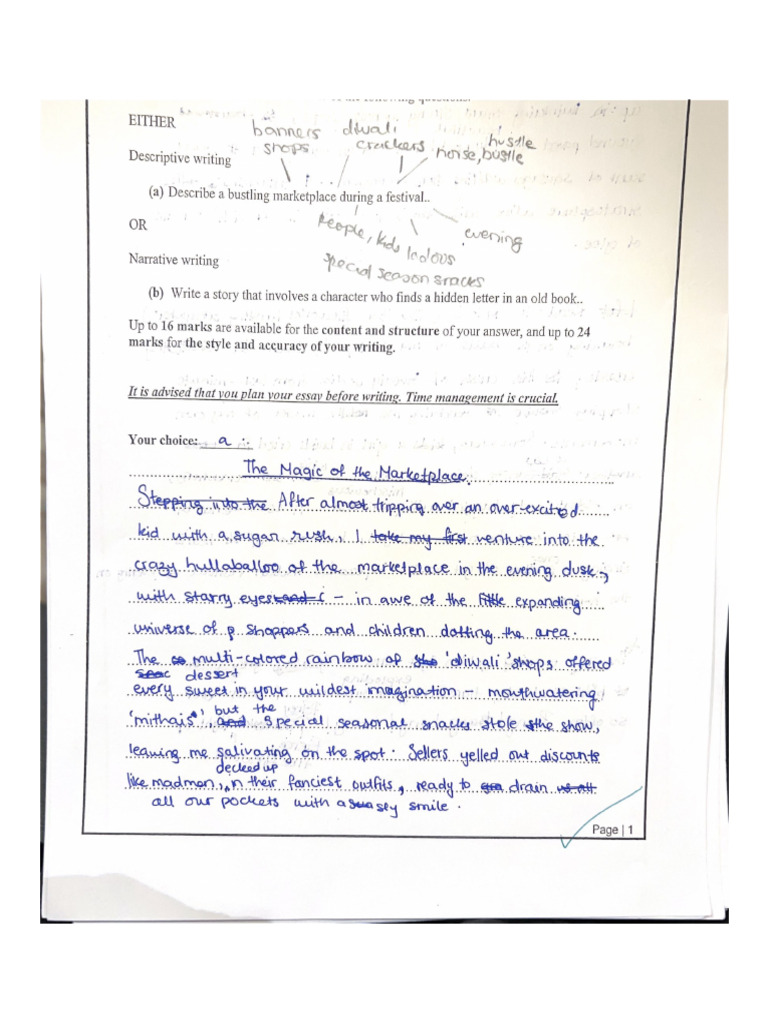 following questions.
EITHER
banners diwali
shops crackers hustle
noise, bustle
Descriptive writing
(a) Describe a bustling marketplace during a festival..
OR
People, kids evening
special season snacks
Narrative writing
(b) Write a story that involves a character who finds a hidden letter in an old book..
Up to 16 marks are available for the content and structure of your answer, and up to 24
marks for the style and accuracy of your writing.
It is advised that you plan your essay before writing. Time management is crucial.
Your choice: a :-
The Magic of the Marketplace.
Stepping into the After almost tripping over an over-excited
kid with a sugar rush, I take my first venture into the
crazy hullaballoo of the marketplace in the evening dusk,
with starry eyes and - in awe of the little expanding
universe of p shoppers and children dotting the area.
The multi-colored rainbow of 'diwali' shops offered
dessert
every sweet in your wildest imagination - mouthwatering
but the
'mithais', and special seasonal snacks stole the show,
leaving me salivating on the spot. Sellers yelled out discounts
decked up
like madmen, in their fanciest outfits, ready to drain us all
all our pockets with a sly smile.
Page | 1